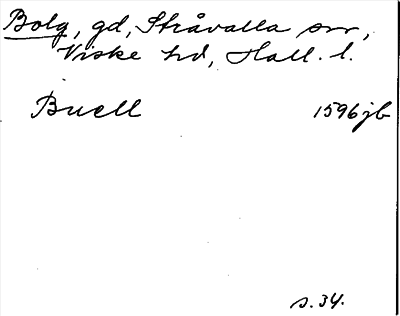 Bolg, gd, Stråvalla sn,
Viske hd, Hall. l.
Buell 1596 jb
s. 34.